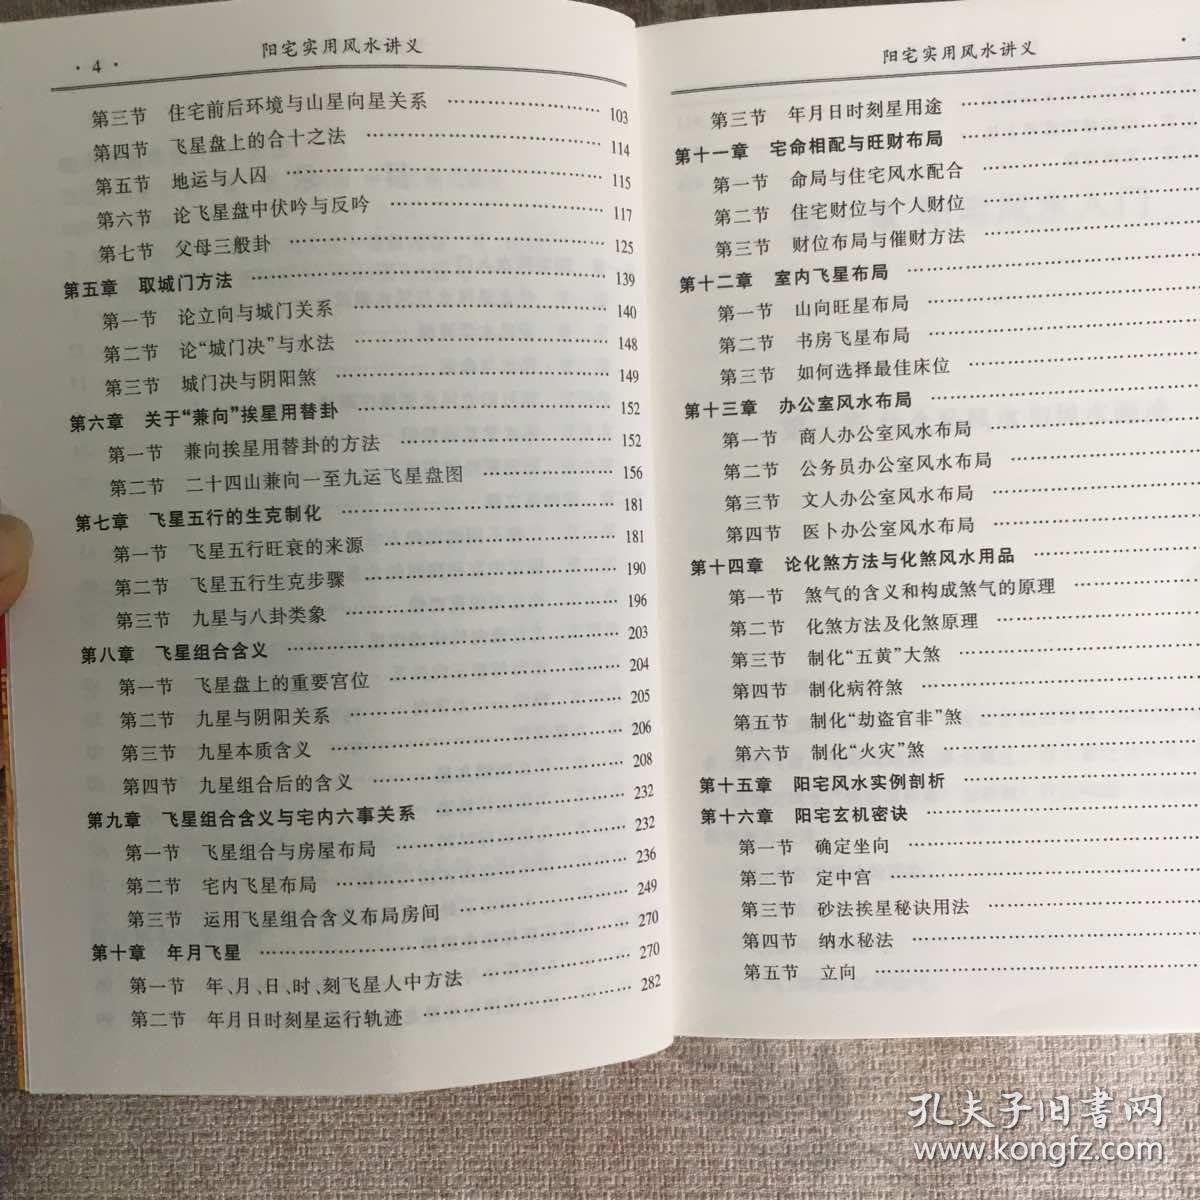 阳宅实用风水讲义
· 4 ·
第三节 住宅前后环境与山星向星关系 ………… 103
第四节 飞星盘上的合十之法 ………… 114
第五节 地运与人囚 ………… 115
第六节 论飞星盘中伏吟与反吟 ………… 117
第七节 父母三般卦 ………… 125
第五章 取城门方法 ………… 139
第一节 论立向与城门关系 ………… 140
第二节 论“城门决”与水法 ………… 148
第三节 城门决与阴阳煞 ………… 149
第六章 关于“兼向”挨星用替卦 ………… 152
第一节 兼向挨星用替卦的方法 ………… 152
第二节 二十四山兼向一至九运飞星盘图 ………… 156
第七章 飞星五行的生克制化 ………… 181
第一节 飞星五行旺衰的来源 ………… 181
第二节 飞星五行生克步骤 ………… 190
第三节 九星与八卦类象 ………… 196
第八章 飞星组合含义 ………… 203
第一节 飞星盘上的重要宫位 ………… 204
第二节 九星与阴阳关系 ………… 205
第三节 九星本质含义 ………… 206
第四节 九星组合后的含义 ………… 208
第九章 飞星组合含义与宅内六事关系 ………… 232
第一节 飞星组合与房屋布局 ………… 232
第二节 宅内飞星布局 ………… 236
第三节 运用飞星组合含义布局房间 ………… 249
第十章 年月飞星 ………… 270
第一节 年、月、日、时、刻飞星人中方法 ………… 270
第二节 年月日时刻星运行轨迹 ………… 282
阳宅实用风水讲义
第三节 年月日时刻星用途 …………
第十一章 宅命相配与旺财布局
第一节 命局与住宅风水配合 …………
第二节 住宅财位与个人财位 …………
第三节 财位布局与催财方法 …………
第十二章 室内飞星布局 …………
第一节 山向旺星布局 …………
第二节 书房飞星布局 …………
第三节 如何选择最佳床位 …………
第十三章 办公室风水布局 …………
第一节 商人办公室风水布局 …………
第二节 公务员办公室风水布局 …………
第三节 文人办公室风水布局 …………
第四节 医卜办公室风水布局 …………
第十四章 论化煞方法与化煞风水用品 …………
第一节 煞气的含义和构成煞气的原理 …………
第二节 化煞方法及化煞原理 …………
第三节 制化“五黄”大煞 …………
第四节 制化病符煞 …………
第五节 制化“劫盗官非”煞 …………
第六节 制化“火灾”煞 …………
第十五章 阳宅风水实例剖析 …………
第十六章 阳宅玄机密诀 …………
第一节 确定坐向 …………
第二节 定中宫 …………
第三节 砂法挨星秘诀用法 …………
第四节 纳水秘法 …………
第五节 立向 …………
孔夫子旧书网
www.kongfz.com